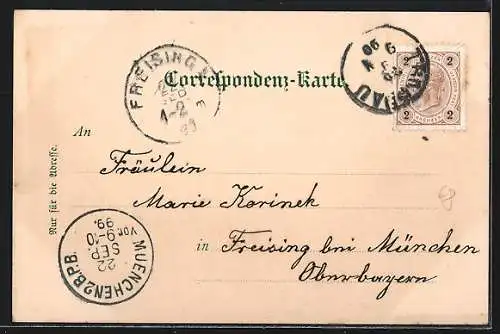 FREISING
Correspondenz-Karte
2 2
2 2
An
Fräulein
Marie Korinek
in Freising bei München
Oberbayern
Nur für die Adresse.
MUENCHEN 2 B.P.B.
22
SEP.
Vor. 9-10
99.